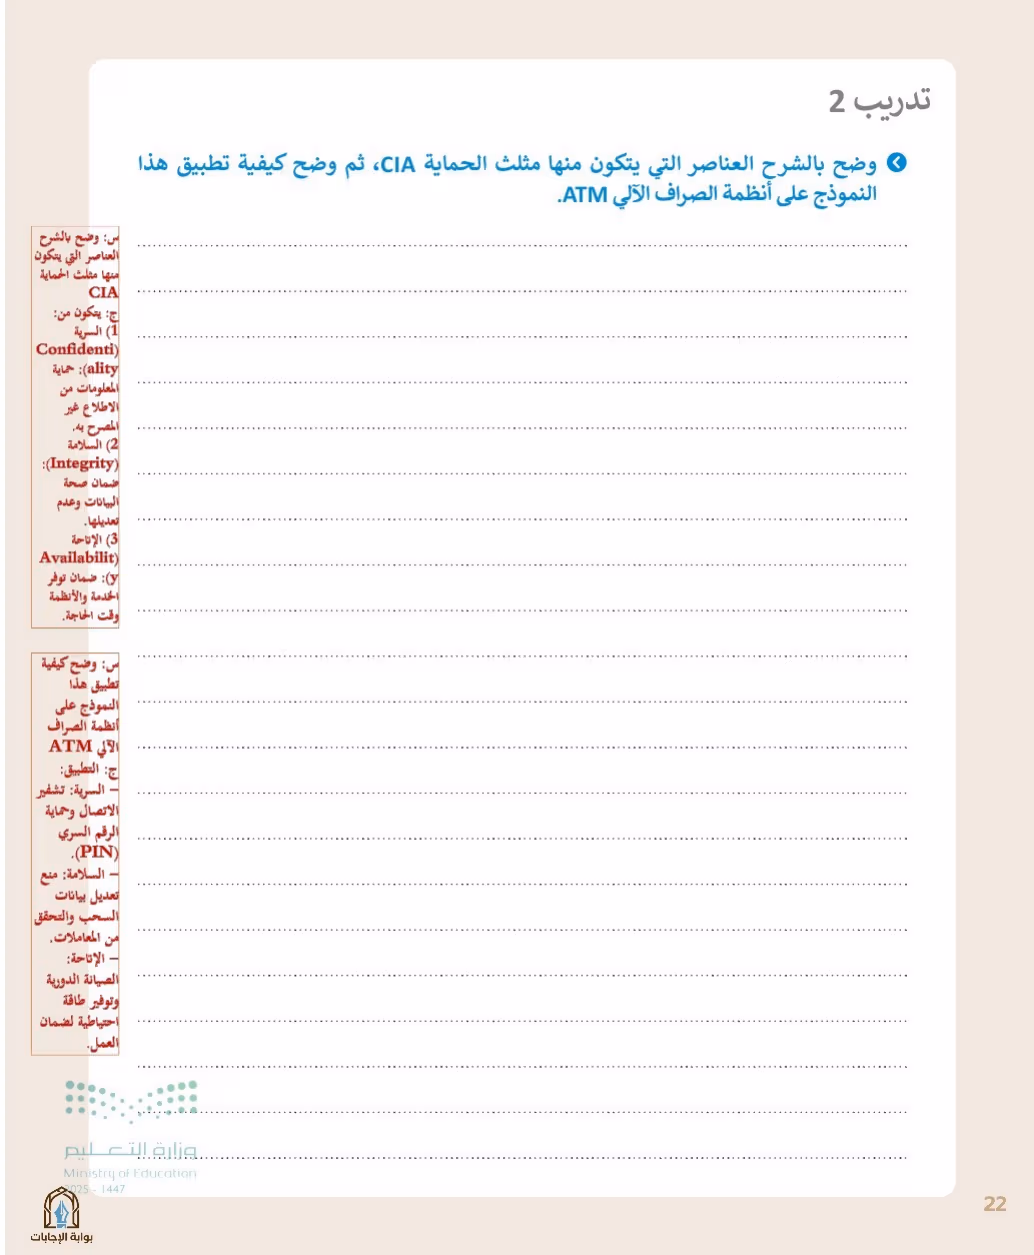 تدريب 2
وضح بالشرح العناصر التي يتكون منها مثلث الحماية CIA، ثم وضح كيفية تطبيق هذا
النموذج على أنظمة الصراف الآلي ATM.
س: وضح بالشرح
العناصر التي يتكون
منها مثلث الحماية
CIA
ج: يتكون من:
1) السرية
(Confidenti
ality): حماية
المعلومات من
الاطلاع غير
المصرح به.
2) السلامة
(Integrity):
ضمان صحة
البيانات وعدم
تعديلها.
3) الإتاحة
(Availabilit
y): ضمان توفر
الخدمة والأنظمة
وقت الحاجة.
س: وضح كيفية
تطبيق هذا
النموذج على
أنظمة الصراف
الآلي ATM
ج: التطبيق:
– السرية: تشفير
الاتصال وحماية
الرقم السري
(PIN).
– السلامة: منع
تعديل بيانات
السحب والتحقق
من المعاملات.
– الإتاحة:
الصيانة الدورية
وتوفير طاقة
احتياطية لضمان
العمل.
وزارة التعليم
Ministry of Education
2025 - 1447
22
بوابة الإجابات